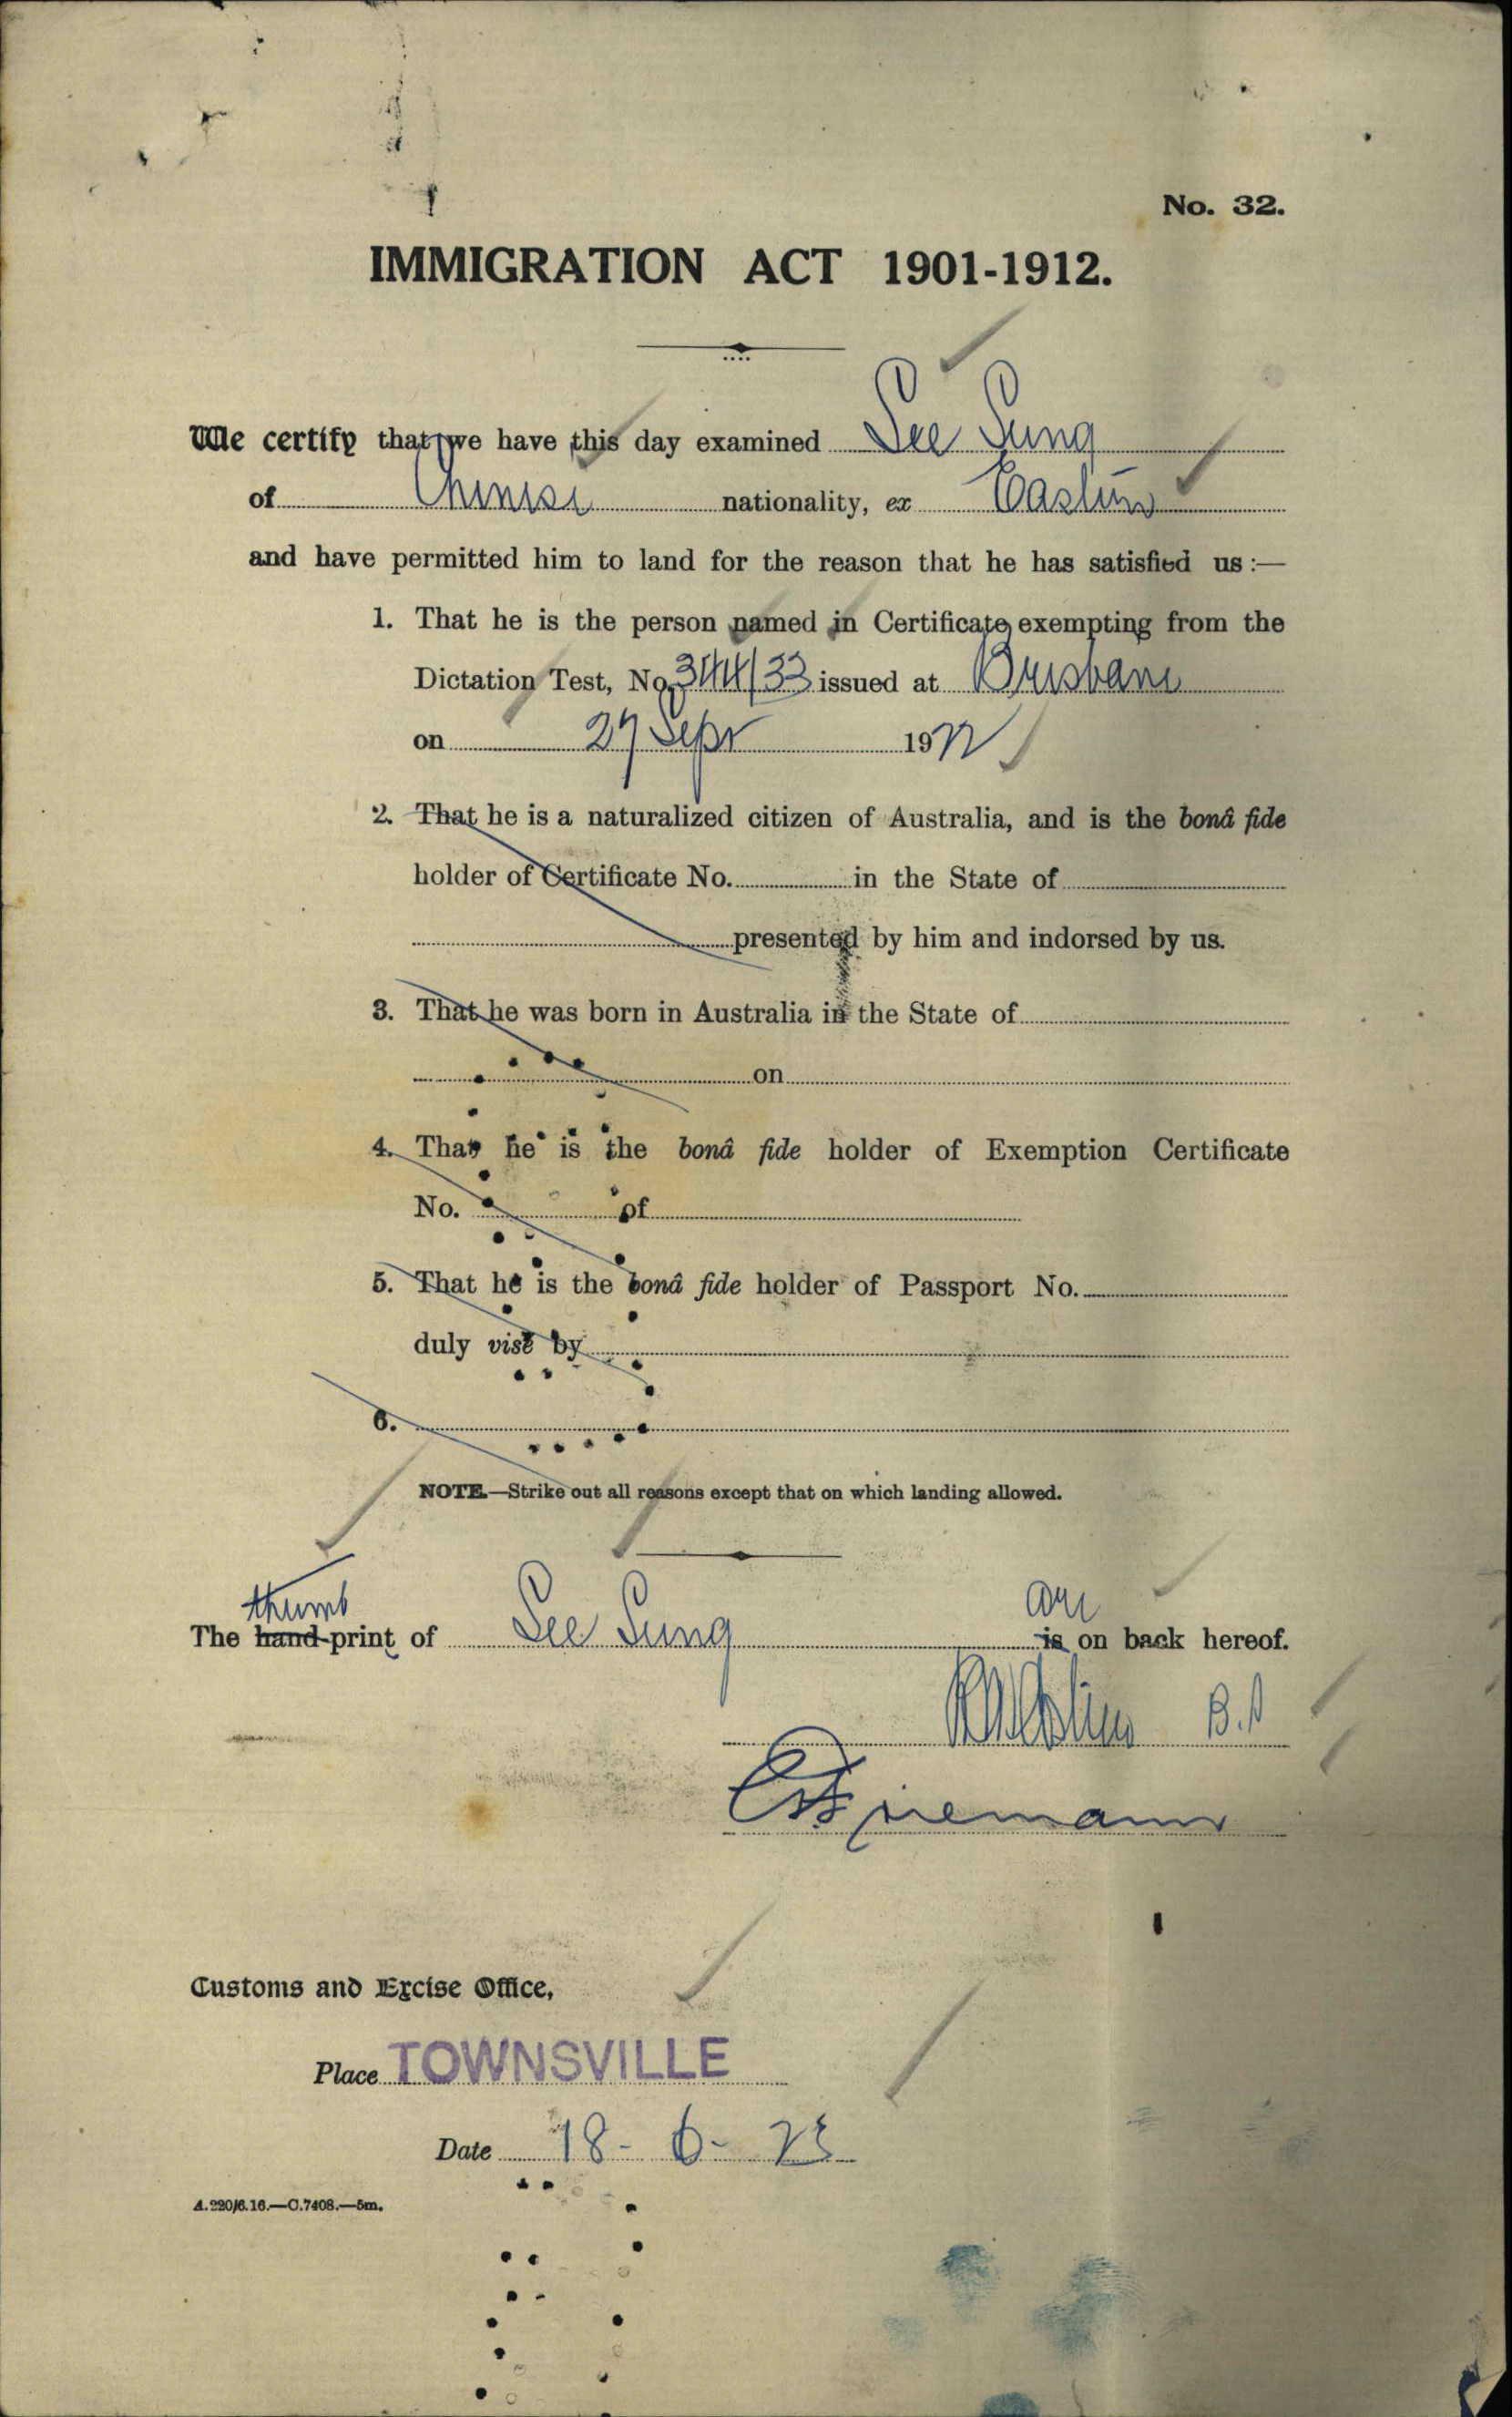 No. 32.
IMMIGRATION ACT 1901-1912.
We certify that we have this day examined See Sung
of Chinese nationality, ex Eastern
and have permitted him to land for the reason that he has satisfied us :—
1. That he is the person named in Certificate exempting from the
Dictation Test, No. 344/33 issued at Brisbane
on 27 Sepr 1922
2. That he is a naturalized citizen of Australia, and is the bonâ fide
holder of Certificate No. in the State of
presented by him and indorsed by us.
3. That he was born in Australia in the State of
on
4. That he is the bonâ fide holder of Exemption Certificate
No. of
5. That he is the bonâ fide holder of Passport No.
duly visé by
6.
NOTE.—Strike out all reasons except that on which landing allowed.
thumb are
The hand-print of See Sung is on back hereof.
Customs and Excise Office,
Place TOWNSVILLE
Date 18-6-23
A.220/6.16.—C.7408.—5m.